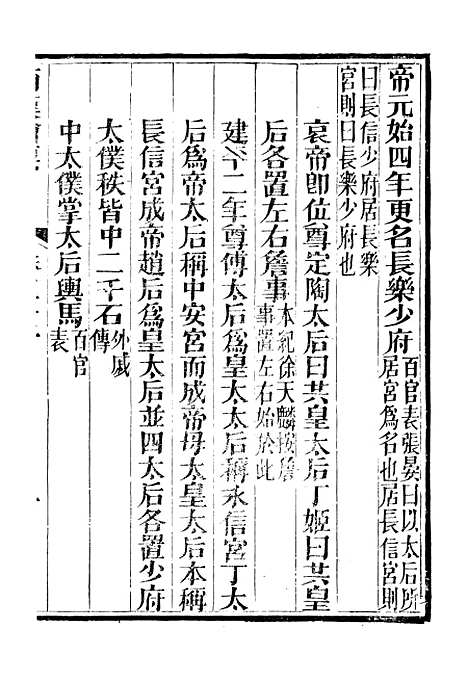 帝元始四年更名長樂少府百官表張晏曰以太后所居宮為名也居長信宮則
曰長信少府居長樂宮則曰長樂少府也
哀帝即位尊定陶太后曰共皇太后丁姬曰共皇
后各置左右詹事本紀徐天麟按詹事置左右始於此
建平二年尊傅太后爲皇太太后稱永信宮丁太
后爲帝太后稱中安宮而成帝母太皇太后本稱
長信宮成帝趙后爲皇太后並四太后各置少府
太僕秩皆中二千石外戚傳
中太僕掌太后輿馬百官表
西漢會要